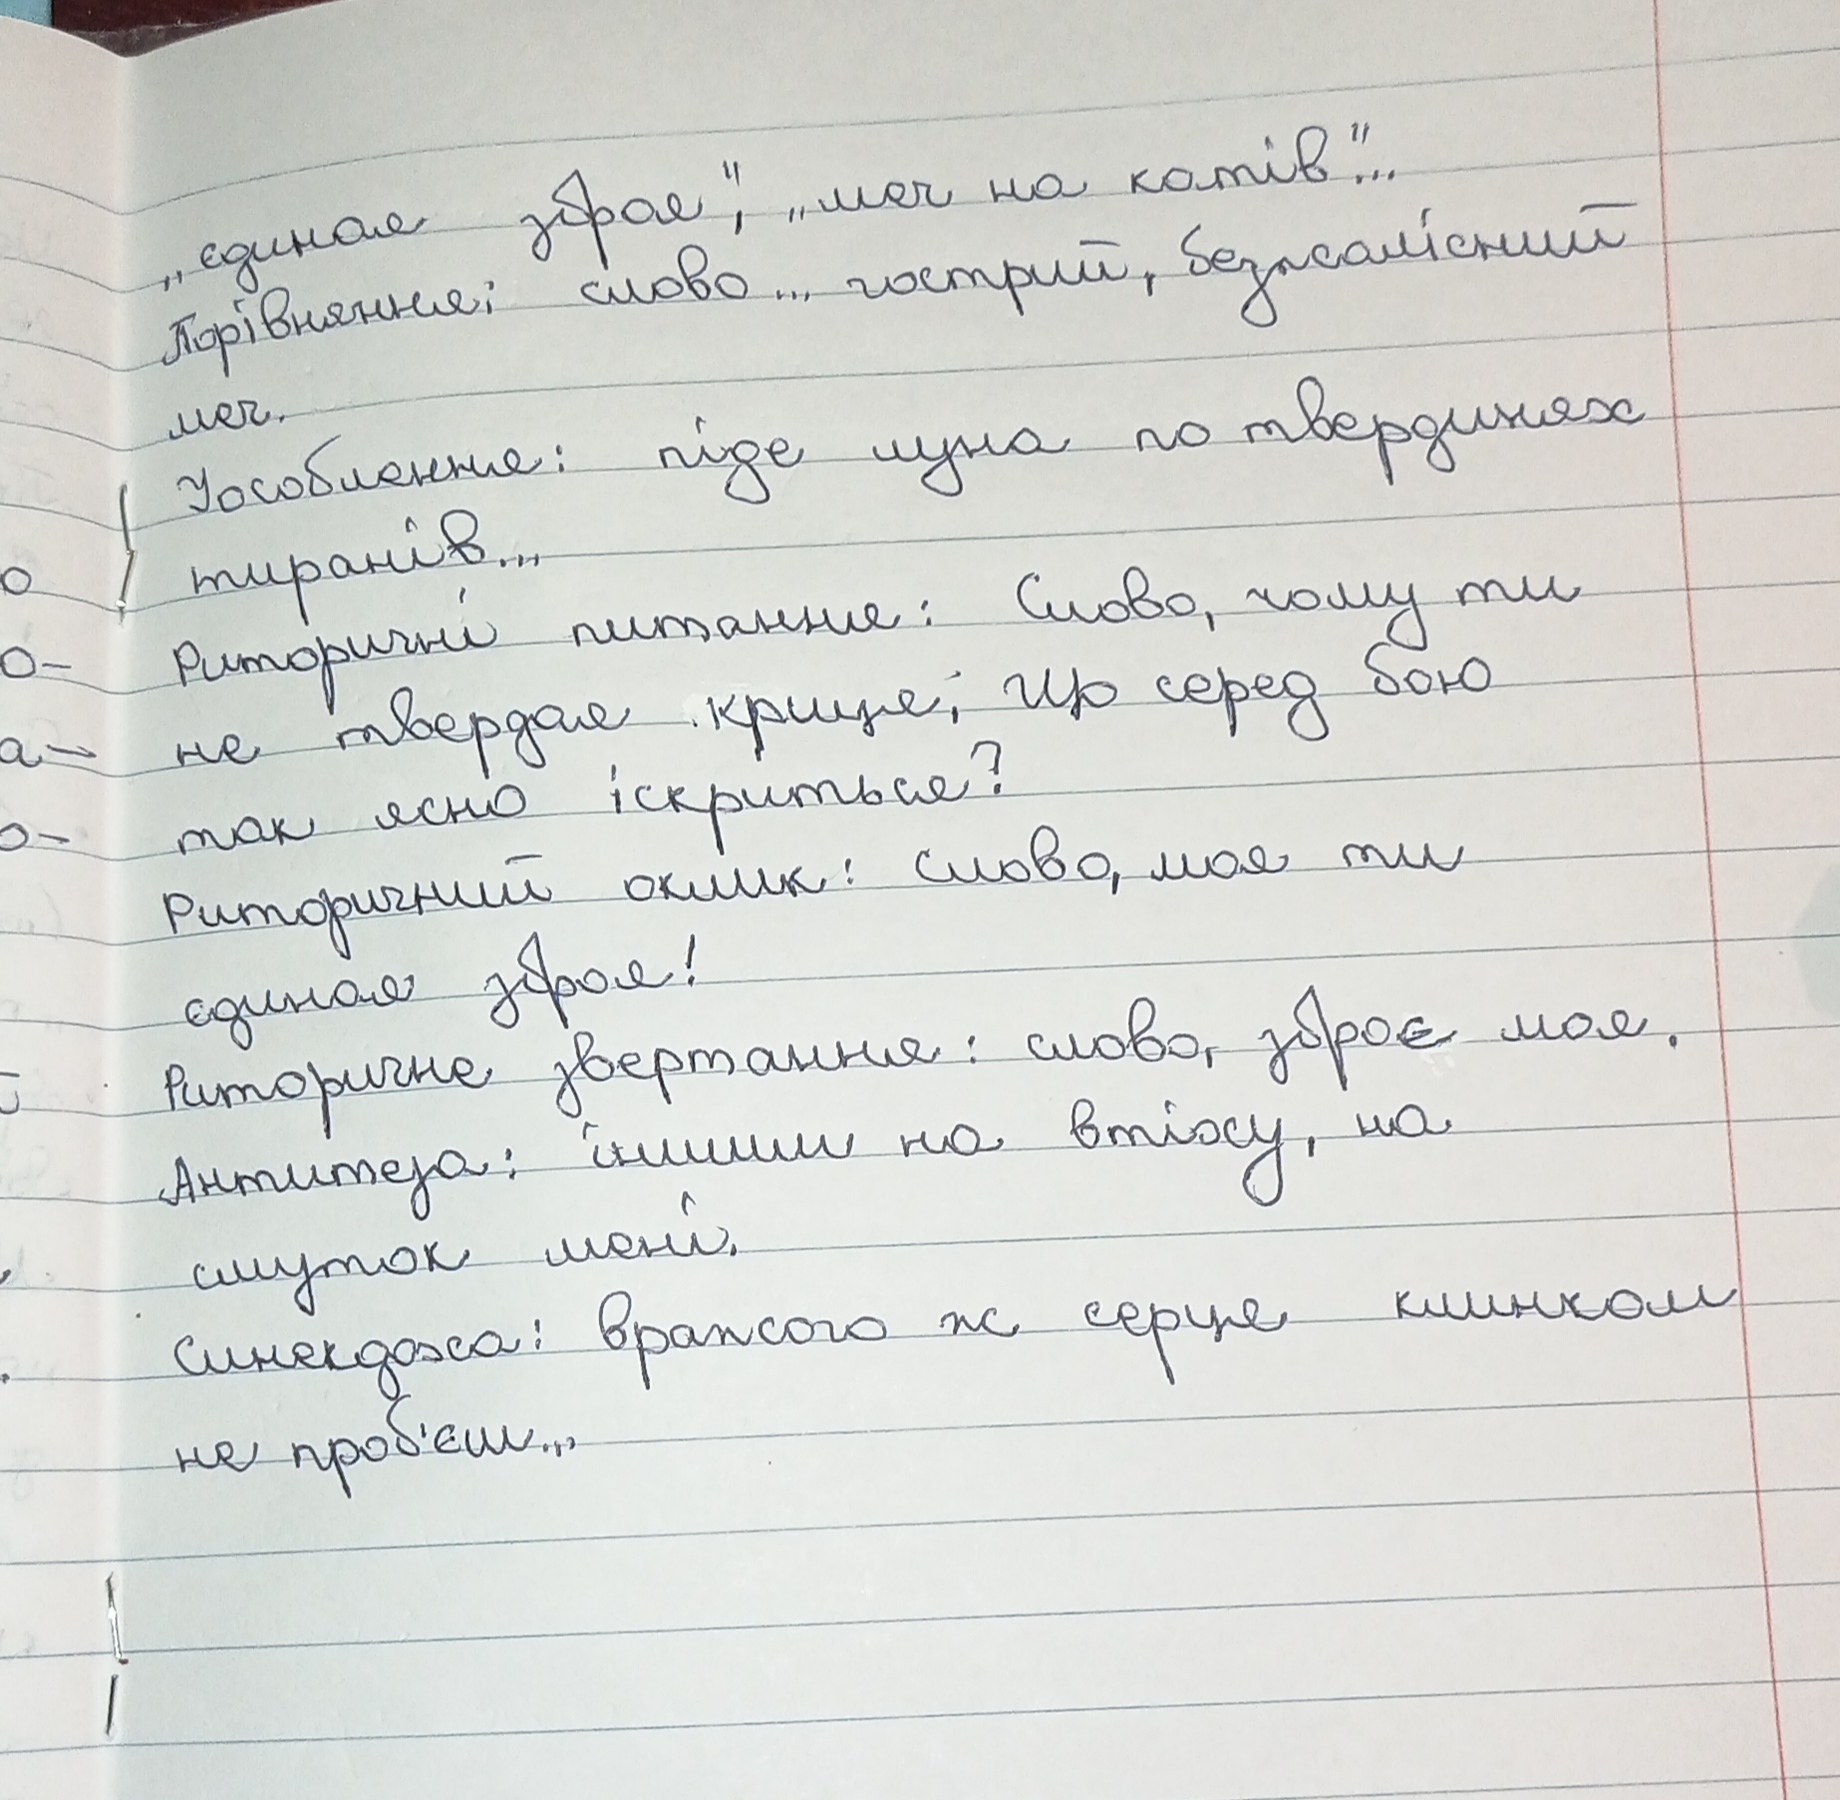 „єдиная зброя", „меч на катів"...
Порівняння: слово... гострий, безжалісний
меч.
Уособлення: піде луна по твердинях
тиранів...
Риторичні питання: Слово, чому ти
не твердая криця, Що серед бою
так ясно іскриться?
Риторичний оклик: Слово, моя ти
єдиная зброя!
Риторичне звертання: слово, зброє моя.
Антитеза: іншим на втіху, на
смуток мені.
Синекдоха: вражого ж серце клинком
не проб'єш...